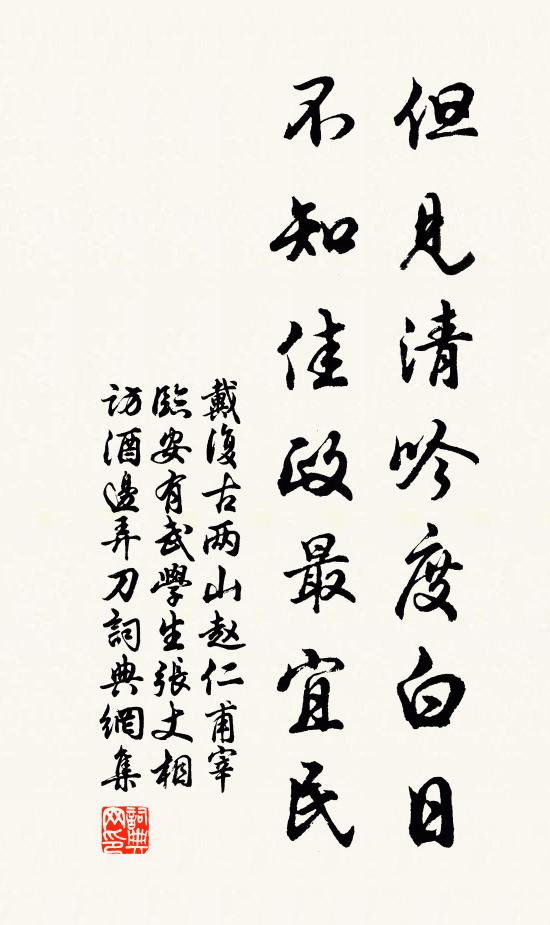 但見清吟度白日
不知佳政最宜民
戴復古两山赵仁甫宰
臨安有武學生張丈相
訪酒邊弄刀詞典網集
詞典
网印